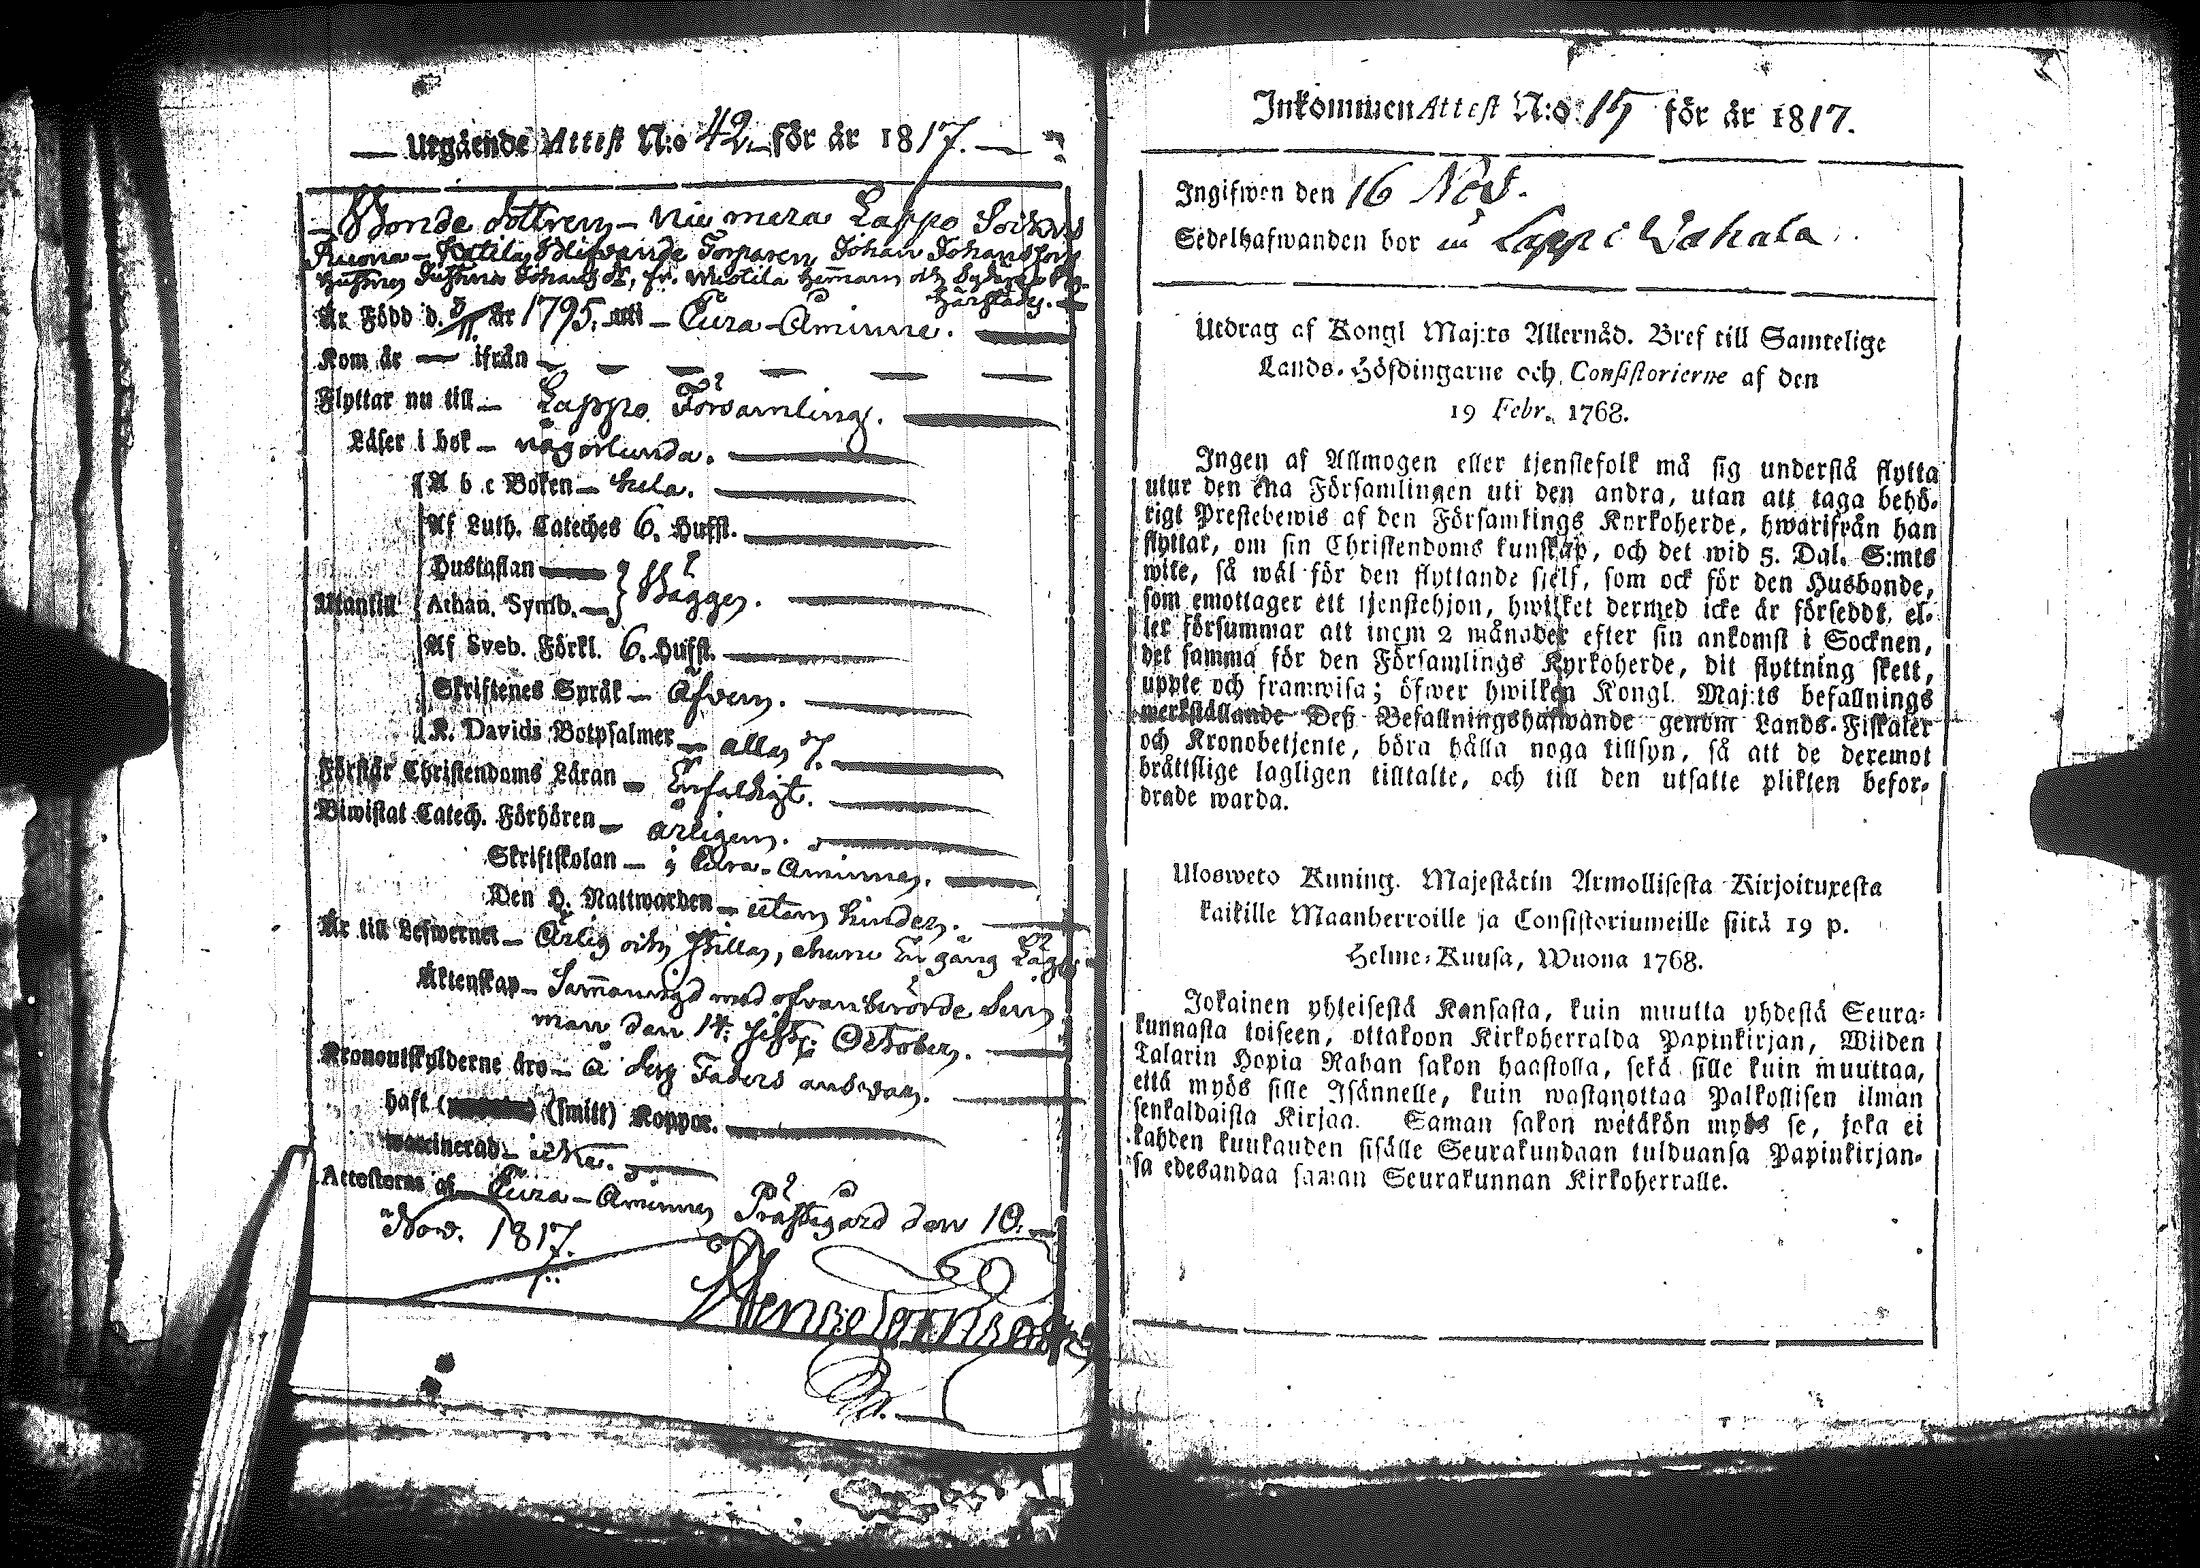 Utgående Attest N:o 42 för år 1817.
Bonde dottren nu mera Lappo Sockns
Johan Johanssons
Är Född d. år 1795. uti Eura-Åminne.
Kom år — ifrån —
Flyttar nu till Lappo Församling.
Läser i bok någorlunda.
A b c Boken hela.
Af Luth. Cateches 6. Hufst.
Hustaflan
Utantill Athan. Symb. Bägge.
Af Sveb. Förkl. 6. Hufst.
Skriftenes Språk äfven.
K. Davids Botpsalmer alla 7.
Förstår Christendoms Läran Enfaldigt.
Biwistat Catech. Förhören årligen.
Skriftskolan i Eura-Åminne.
Den H. Nattwarden utan hinder.
Är till Lefwernet Ärlig och Stilla,
Äktenskap Sammanvigd med ofvanberörde
man den 14: October.
Kronoutskylderne äro å Faders answar.
haft (smitt) Koppor.
waccinerad icke.
Attesteras af Eura-Åminne Prästgård den 10.
Nov. 1817.
Inkommen Attest N:o 15 för år 1817.
Ingifwen den 16 Nov.
Sedelhafwanden bor i Lappi
Utdrag af Kongl Maj:ts Allernåd. Bref till Samtelige
Lands-Höfdingarne och Consistorierne af den
19 Febr. 1768.
Ingen af Allmogen eller tjenstefolk må sig understå flytta
utur den ena Församlingen uti den andra, utan att taga behö-
rigt Prestebewis af den Församlings Kyrkoherde, hwarifrån han
flyttar, om sin Christendoms kunskap, och det wid 5. Dal. S:mts
wite, så wäl för den flyttande sjelf, som ock för den Husbonde,
som emottager ett tjenstehjon, hwilket dermed icke är försedt, el-
ler försummar att inom 2 månader efter sin ankomst i Socknen,
det samma för den Församlings Kyrkoherde, dit flyttning skett,
uppte och framwisa; öfwer hwilken Kongl. Maj:ts befallnings
werkställande Deß Befallningshafwande genom Lands-Fiskaler
och Kronobetjente, böra hålla noga tillsyn, så att de deremot
bråttslige lagligen tilltalte, och till den utsatte plikten befor-
drade warda.
Ulosweto Kuning. Majestätin Armollisesta Kirjoituxesta
kaikille Maanherroille ja Consistoriumeille siitä 19 p.
Helme-Kuusa, Wuona 1768.
Jokainen yhteisestä Kansasta, kuin muutta yhdestä Seura-
kunnasta toiseen, ottakoon Kirkoherralda Papinkirjan, Wiiden
Talarin Hopia Rahan sakon haastolla, sekä sille kuin muuttaa,
että myös sille Isännelle, kuin wastanottaa Palkollisen ilman
senkaldaista Kirjaa. Saman sakon wetäkön myös se, joka ei
kahden kuukauden sisälle Seurakundaan tulduansa Papinkirjan-
sa edesandaa saman Seurakunnan Kirkoherralle.